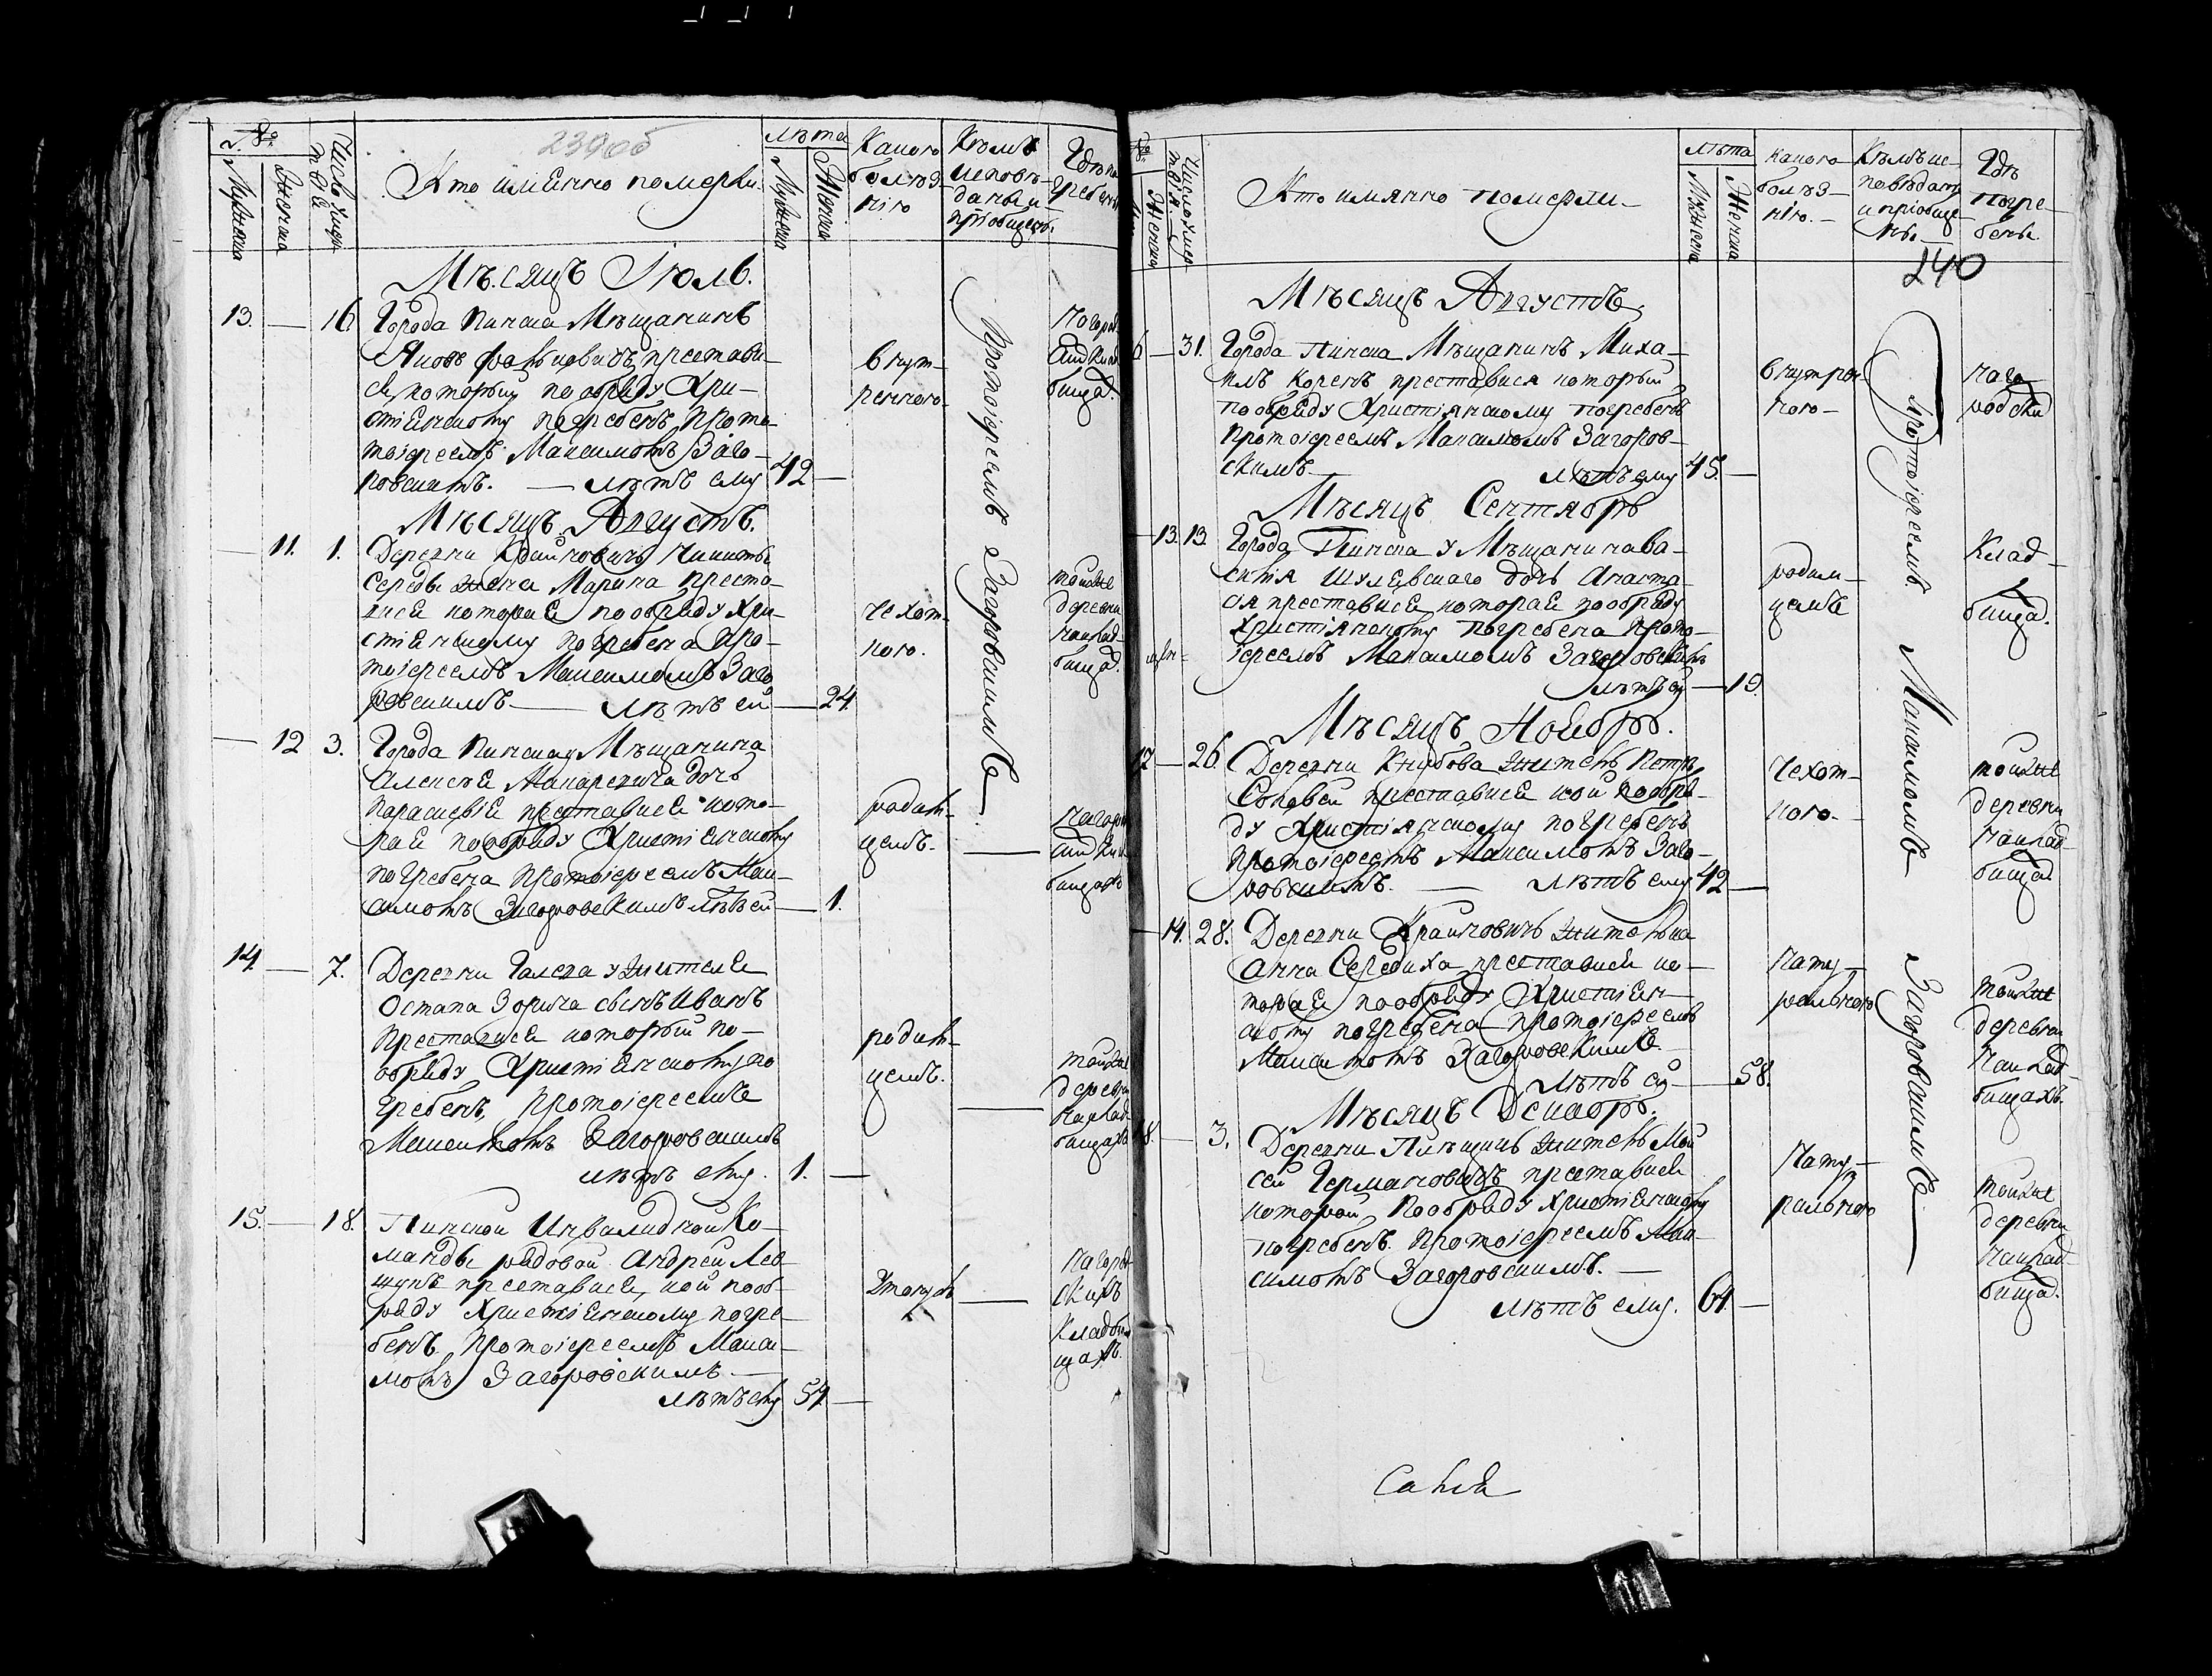 239 об
№
Мужеска
Женска
Число умер
Кто имянно померли.
Лѣта
Мужеска
Женска
Какою
болѣз-
нію
Кѣмъ
исповѣ-
даны и
пріобщены.
Гдѣ по
гребены
Мѣсяцъ Іюль.
13. — 16 Города Пинска Мѣщанинъ
Яковъ преставис
я который по обряду Хри-
стіянскому погребенъ Прото
тоіереемъ Максимомъ Заго-
ровскимъ. — лѣтъ ему 42 —
внут-
реннею
Протоіереемъ Загоровскимъ
Мѣсяцъ Августъ.
— 11. 1. Деревни Крайновичъ Никиты
Середы жена Марина преста-
вися которая по обряду Хри-
стіянскому погребена Про-
тоіереемъ Максимомъ Заго
ровскимъ — лѣтъ ей — 24.
чехот-
ною.
той же
деревни
на клад-
бищах.
— 12 3. Города Пинска у Мѣщанина
Алексея Макаревича дочь
Параскевія преставися кото-
рая по обряду Христіянскому
погребена Протоіереемъ Мак-
симомъ Загоровскимъ лѣтъ ей — 1.
родим-
цемъ. —
на город
ски Кла
бищахъ
14 — 7. Деревни Галева у жителя
Остапа Зорича сынъ Иванъ
Преставися который по-
обряду Христіянскому по
гребенъ, Протоіереемъ
Максимомъ Загоровскимъ
лѣтъ ему. 1. —
родим-
цемъ. —
той же
деревни
на клад-
бищахъ
15. — 18. Пинской Инвалидной Ко-
манды рядовой Андрей Лев-
шукъ преставися, кой по об-
ряду Христіянскому погре-
бенъ Протоіереемъ Макси-
момъ Загоровскимъ. —
лѣтъ ему 54 —
на город
скихъ
Кладби
щахъ.
№
Женска
Число умер
Кто имянно померли —
лѣта
Мужеска
Женска
какою
болѣз-
нію. —
Кѣмъ ис-
поведаны
и пріобще-
ны. —
Гдѣ
погре-
бены.
240
Мѣсяцъ Августъ.
6 — 31. Города Пинска Мѣщанинъ Миха-
илъ Коренъ преставися который
по обряду Христіянскому погребенъ
Протоіереемъ Максимомъ Загоров-
скимъ — лѣтъ ему 45. —
внутрен-
нею —
на го
родски
Протоіереемъ Максимомъ Загоровскимъ
Мѣсяцъ Сентябрь
— 13. 13 Города Пинска у Мѣщанина Ва-
силія Шулевскаго дочь Анаста-
сія преставися которая по обряду
Христіянскому погребена Прото-
іереемъ Максимомъ Загоровскимъ
лѣтъ ей — 19.
родим-
цемъ
Клад-
бищах.
Мѣсяцъ Ноябрь.
17 — 26. Деревни Кнубова житель Петръ
Соловей преставися кой по обря-
ду Христіянскому погребенъ
Протоіереемъ Максимомъ Заго-
ровскимъ. — лѣтъ ему 42 —
Чехот-
ною —
той же
деревни
на клад-
бищах
— 14. 28. Деревни Крайновичъ жителька
Анна Середиха преставися ко-
торая по обряду Христіян-
скому погребена протоіереемъ
Максимомъ Загоровскимъ.
лѣтъ ей — 58.
Нату-
ральною
той же
деревни
На клад-
бищахъ.
Мѣсяцъ Декабрь.
18. — 3. Деревни житель Мои
сей Германовичъ преставися
которой по обряду Христіянскому
погребенъ. Протоіереемъ Мак-
симомъ Загоровскимъ. —
лѣтъ ему. 64. —
Нату-
ральною
той же
деревни
на клад-
бищах.